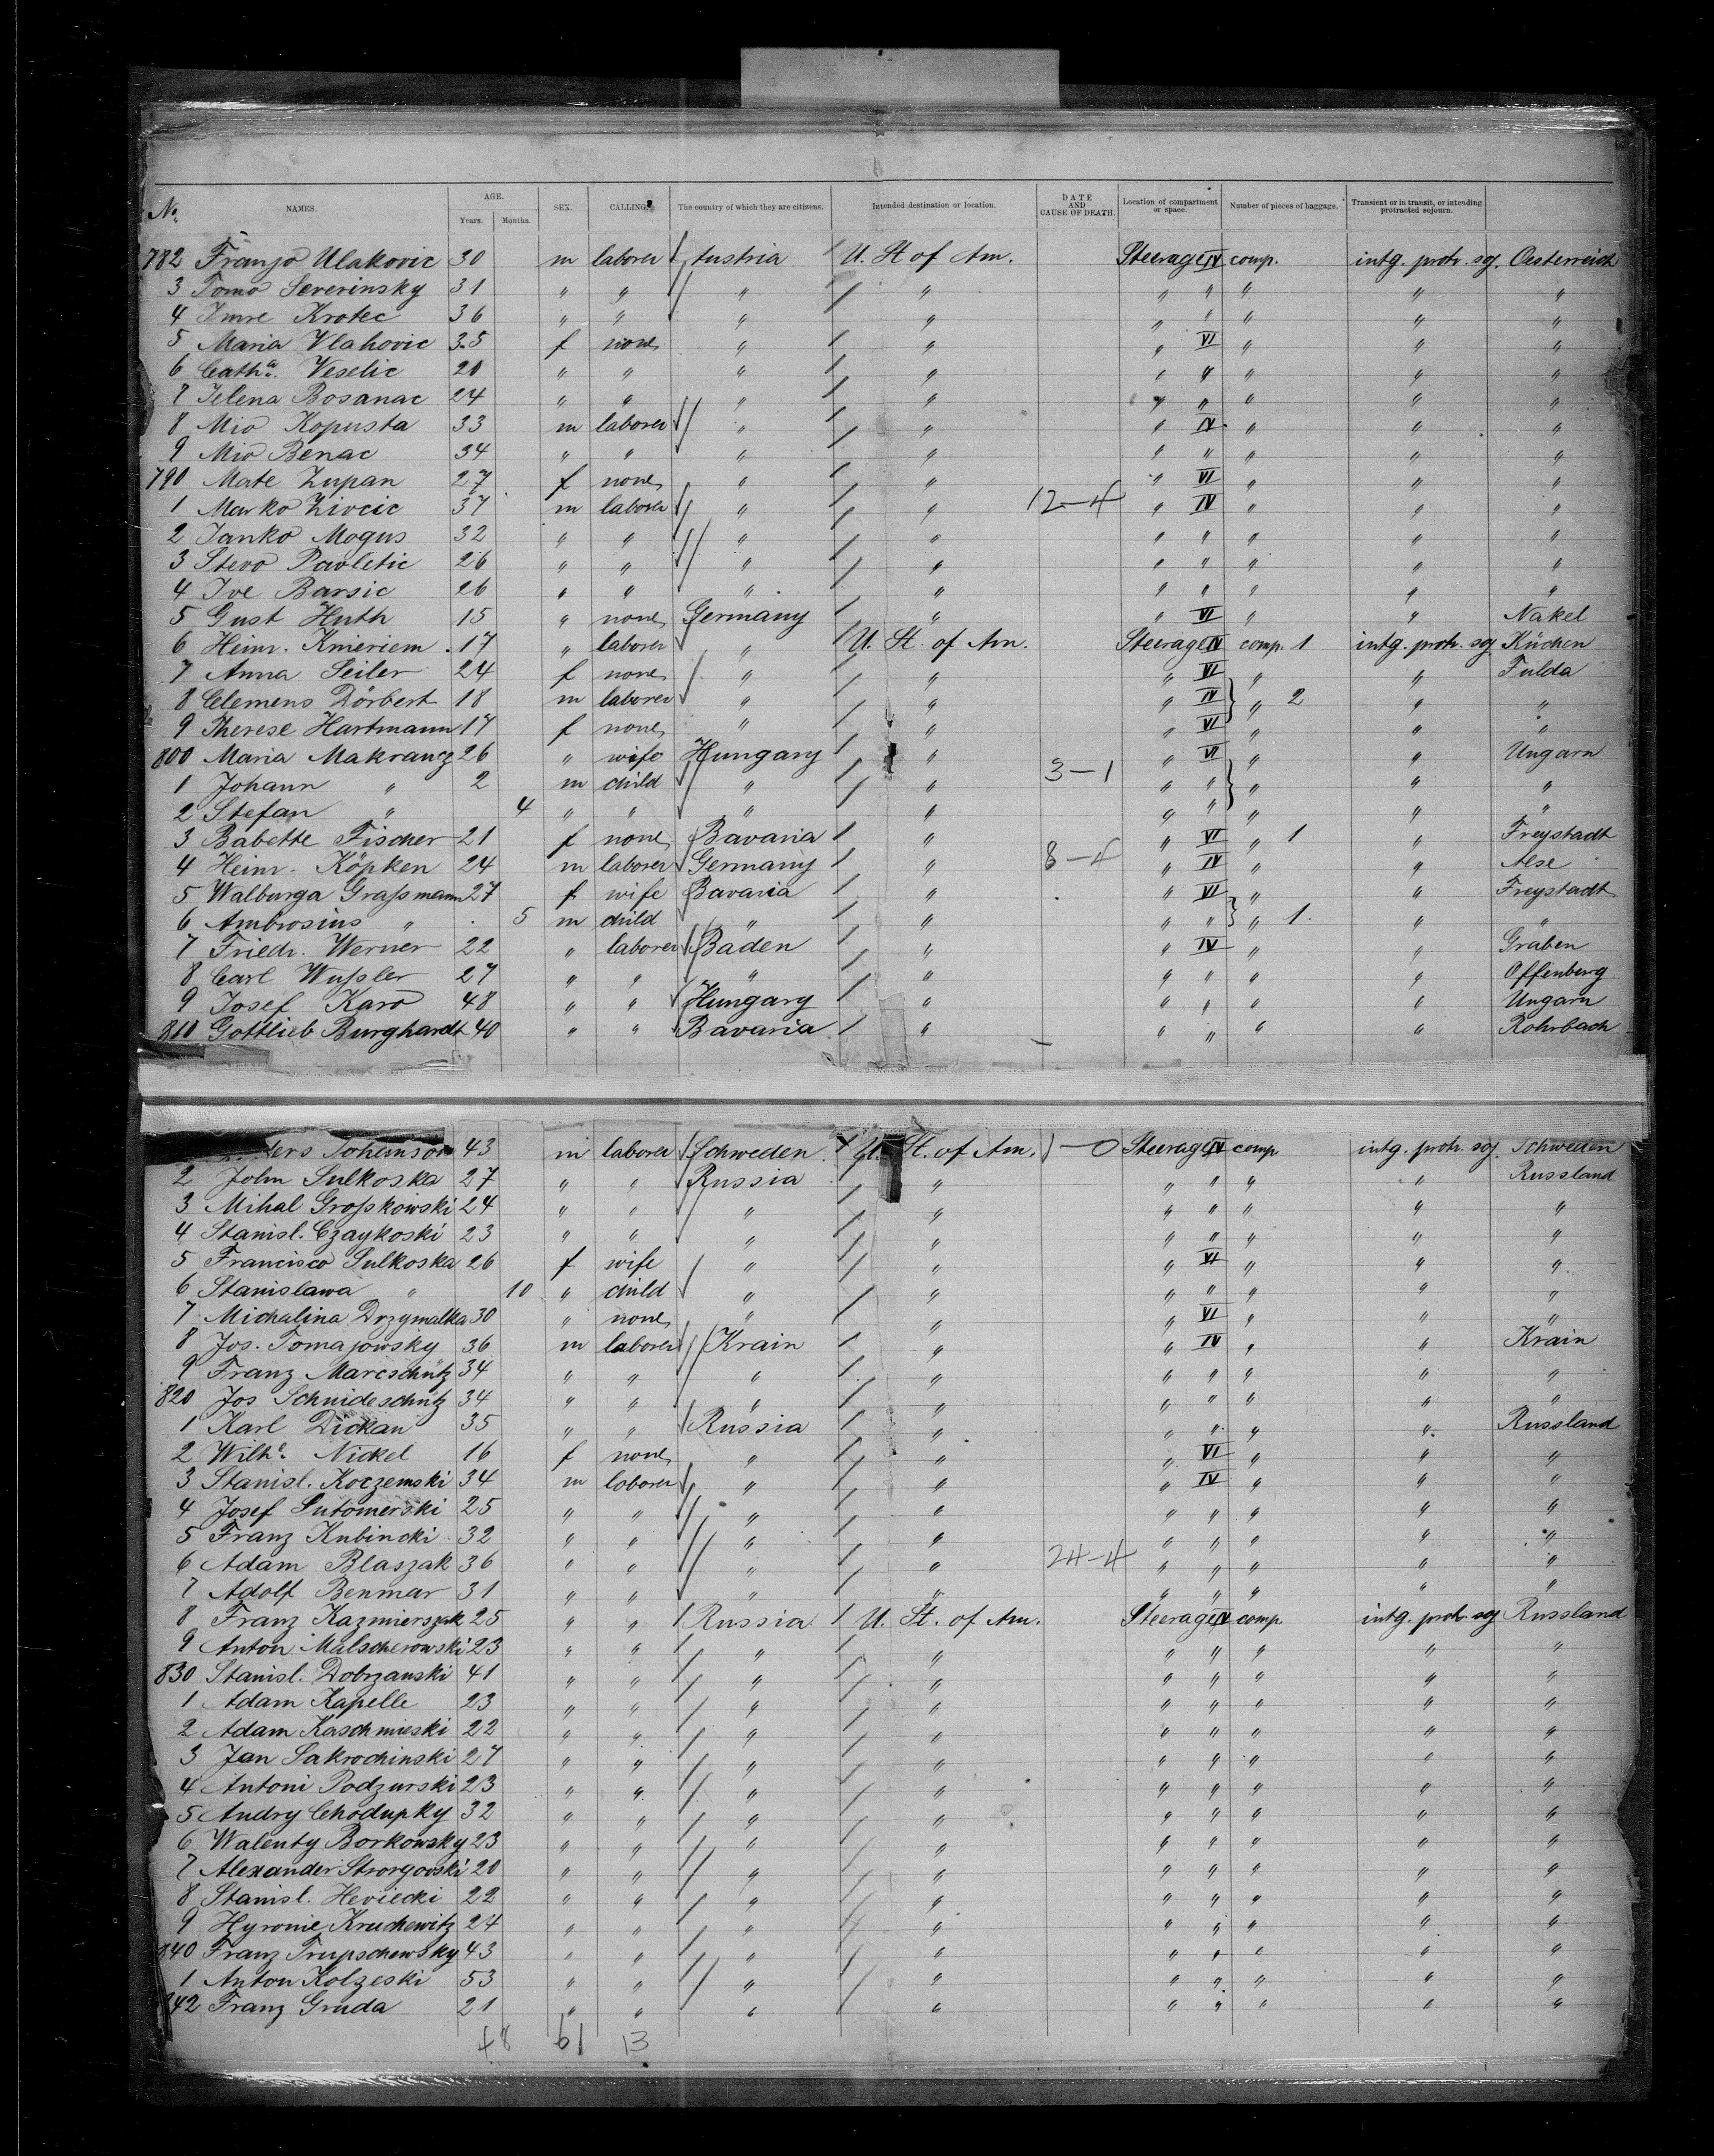 No. NAMES. AGE. Years. Months. SEX. CALLING. The country of which they are citizens. Intended destination or location. DATE AND CAUSE OF DEATH. Location of compartment or space. Number of pieces of baggage. Transient or in transit, or intending protracted sojourn.
782 Franjo Ulakovic 30 m laborer Austria U. St of Am. Steerage IV comp. intg. protr. sg. Oesterreich
3 Tomo Severinsky 31 " " " " " " " " "
4 Imre Krotec 36 " " " " " " " " "
5 Maria Vlahovic 35 f none " " " VI " " "
6 Catha. Veselic 20 " " " " " " " " "
7 Jelena Bosanac 24 " " " " " " " " "
8 Mio Kopusta 33 m laborer " " " IV " " "
9 Mio Benac 34 " " " " " " " " "
790 Mate Zupan 27 f none " " " VI " " "
1 Marko Zivcic 37 m laborer " " 12-4 " IV " " "
2 Janko Mogus 32 " " " " " " " " "
3 Stevo Pavletic 26 " " " " " " " " "
4 Ive Barsic 26 " " " " " " " " "
5 Gust Huth 15 " none Germany " " VI " " Nakel
6 Heinr. Kmeriem 17 " laborer " U. St. of Am. Steerage IV comp. 1 intg. protr. sg Küchen
7 Anna Seiler 24 f none " " " VI " " Fulda
8 Clemens Dörbert 18 m laborer " " " IV " 2 " "
9 Therese Hartmann 17 f none " " " VI " " "
800 Maria Makrancz 26 " wife Hungary " " VI " " Ungarn
1 Johann " 2 m child " " 3-1 " " " " "
2 Stefan " 4 " " " " " " " "
3 Babette Fischer 21 f none Bavaria " " VI " 1 " Freystadt
4 Heinr. Köpken 24 m laborer Germany " 8-4 " IV " " Alse
5 Walburga Graßmann 27 f wife Bavaria " " VI " Freystadt
6 Ambrosius " 5 m child " " " " " 1. " "
7 Friedr. Werner 22 " laborer Baden " " IV " " Graben
8 Carl Wußler 27 " " " " " " " " Offenberg
9 Josef Karo 48 " " Hungary " " " " " Ungarn
810 Gottlieb Burghardt 40 " " Bavaria " " " " " Rohrbach
Johanson 43 m laborer Schweden U. St. of Am. Steerage IV comp intg. protr. sg. Schweden
2 John Sulkoska 27 " " Russia " " " " " Russland
3 Mihal Großkowski 24 " " " " " " " " "
4 Stanisl. Czaykoski 23 " " " " " " " " "
5 Francisca Sulkoska 26 f wife " " " VI " " "
6 Stanislawa " 10 " child " " " " " " "
7 Michalina Drzymalka 30 " none " " " VI " " "
8 Jos. Tomajowsky 36 m laborer Krain " " IV " " Krain
9 Franz Marcschütz 34 " " " " " " " " "
820 Jos Schnideschitz 34 " " " " " " " " "
1 Karl Dickau 35 " " Russia " " " " " Russland
2 Wilhe. Nickel 16 f none " " " VI " " "
3 Stanisl. Koczemski 34 m laborer " " " IV " " "
4 Josef Sutomerski 25 " " " " " " " " "
5 Franz Kubincki 32 " " " " " " " " "
6 Adam Blaszak 36 " " " " 24-4 " " " " "
7 Adolf Benmar 31 " " " " " " " " "
8 Franz Kazmierszak 25 " " Russia U. St. of Am. Steerage IV comp. intg. protr. sg Russland
9 Anton Malscherowski 23 " " " " " " " " "
830 Stanisl. Dobrzanski 41 " " " " " " " " "
1 Adam Kapelle 23 " " " " " " " " "
2 Adam Kaschmieski 22 " " " " " " " " "
3 Jan Sakrochinski 27 " " " " " " " " "
4 Antoni Podzurski 23 " " " " " " " " "
5 Andry Chodupky 32 " " " " " " " " "
6 Walenty Borkowsky 23 " " " " " " " " "
7 Alexander Strorgovski 20 " " " " " " " " "
8 Stanisl. Heviecki 22 " " " " " " " " "
9 Hyronie Kruchewitz 24 " " " " " " " " "
840 Franz Trupschewsky 43 " " " " " " " " "
1 Anton Kolzeski 53 " " " " " " " " "
842 Franz Gruda 21 " " " " " " " " "
48 61 13